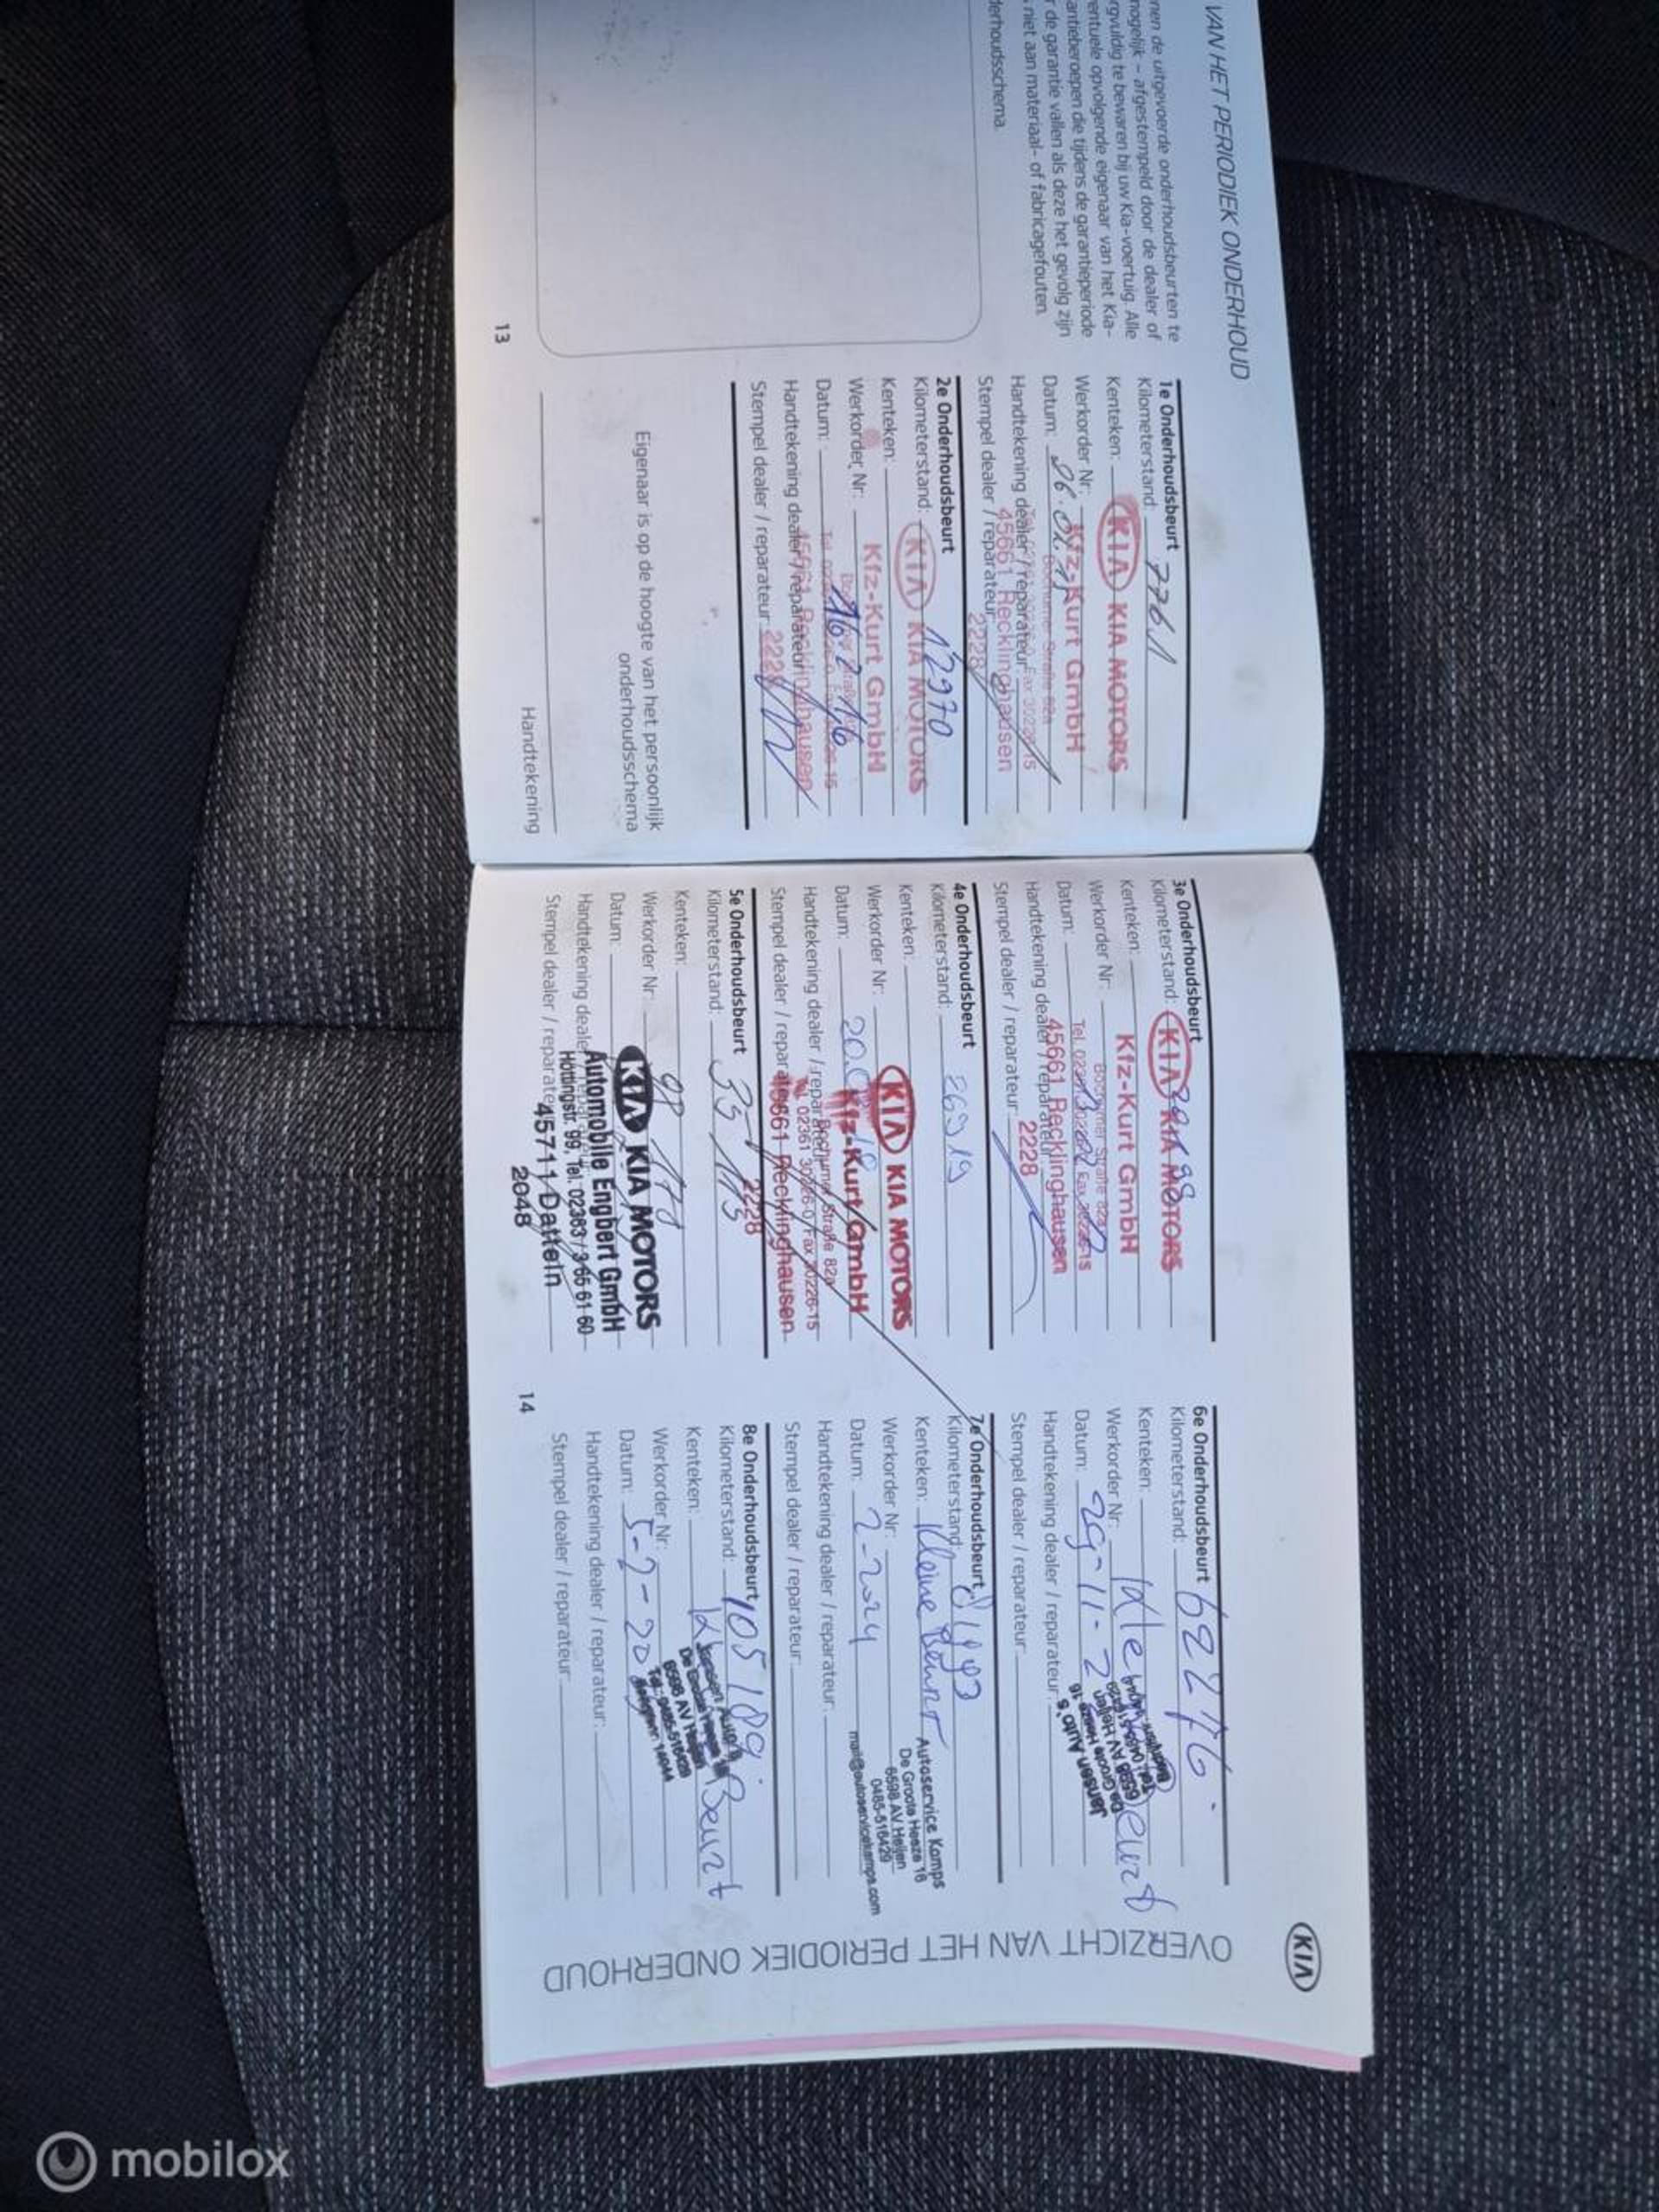 VAN HET PERIODIEK ONDERHOUD
nen de uitgevoerde onderhoudsbeurten te
mogelijk – afgestempeld door de dealer of
rgvuldig te bewaren bij uw Kia-voertuig. Alle
entuele opvolgende eigenaar van het Kia-
antieberoepen die tijdens de garantieperiode
r de garantie vallen als deze het gevolg zijn
niet aan materiaal- of fabricagefouten.
derhoudsschema.
13
1e Onderhoudsbeurt
Kilometerstand: 7761
Kenteken:
KIA KIA MOTORS
Werkorder Nr:
Kfz-Kurt GmbH
Datum:
Handtekening dealer / reparateur:
45661 Recklinghausen
Stempel dealer / reparateur:
2228
2e Onderhoudsbeurt
Kilometerstand: 12970
KIA KIA MOTORS
Kenteken:
Kfz-Kurt GmbH
Werkorder Nr:
Datum: 16.2.16
Handtekening dealer / reparateur:
45661 Recklinghausen
Stempel dealer / reparateur:
2228
Eigenaar is op de hoogte van het persoonlijk
onderhoudsschema
Handtekening
3e Onderhoudsbeurt
Kilometerstand:
KIA KIA MOTORS
Kenteken:
Kfz-Kurt GmbH
Werkorder Nr:
Bochumer Straße 82a
Datum:
Handtekening dealer / reparateur:
45661 Recklinghausen
Stempel dealer / reparateur:
2228
4e Onderhoudsbeurt
Kilometerstand: 26919
Kenteken:
KIA KIA MOTORS
Werkorder Nr:
Kfz-Kurt GmbH
Datum:
Bochumer Straße 82a
Handtekening dealer / reparateur:
Tel. 02361 30226-0 Fax 30226-15
Stempel dealer / reparateur:
45661 Recklinghausen
2228
5e Onderhoudsbeurt
Kilometerstand:
Kenteken:
Werkorder Nr:
KIA KIA MOTORS
Datum:
Automobile Engbert GmbH
Handtekening dealer / reparateur:
Höttingstr. 99, Tel. 02363 / 3 65 61 60
Stempel dealer / reparateur:
45711 Datteln
2048
14
6e Onderhoudsbeurt
Kilometerstand: 62276
Kenteken:
Werkorder Nr:
Datum: 29-11-2
Jansen Auto's
De Groote Heeze 16
6598 AV Heijen
Handtekening dealer / reparateur:
Stempel dealer / reparateur:
7e Onderhoudsbeurt
Kilometerstand:
Kenteken: Kleine Beurt
Werkorder Nr:
Datum: 2-2024
Autoservice Kamps
De Groote Heeze 16
6598 AV Heijen
0485-516429
mail@autoservicekamps.com
Handtekening dealer / reparateur:
Stempel dealer / reparateur:
8e Onderhoudsbeurt
Kilometerstand: 105189
Kenteken: Beurt
Werkorder Nr:
Datum: 5-2-20
6598 AV Heijen
Tel.: 0485-516429
Handtekening dealer / reparateur:
Stempel dealer / reparateur:
OVERZICHT VAN HET PERIODIEK ONDERHOUD
KIA
mobilox